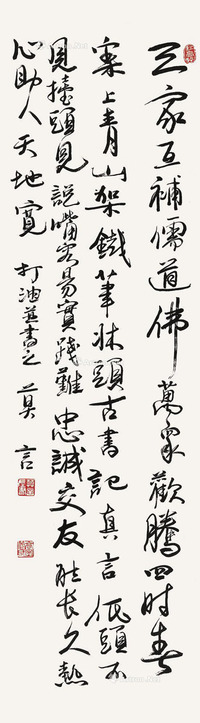 三家互補儒道佛萬衆歡騰四時春
案上青山架鐵筆牀頭古書記真言低頭不
見擡頭見説嘴容易實踐難忠誠交友能長久熱
心助人天地寬 打油並書之 莫言